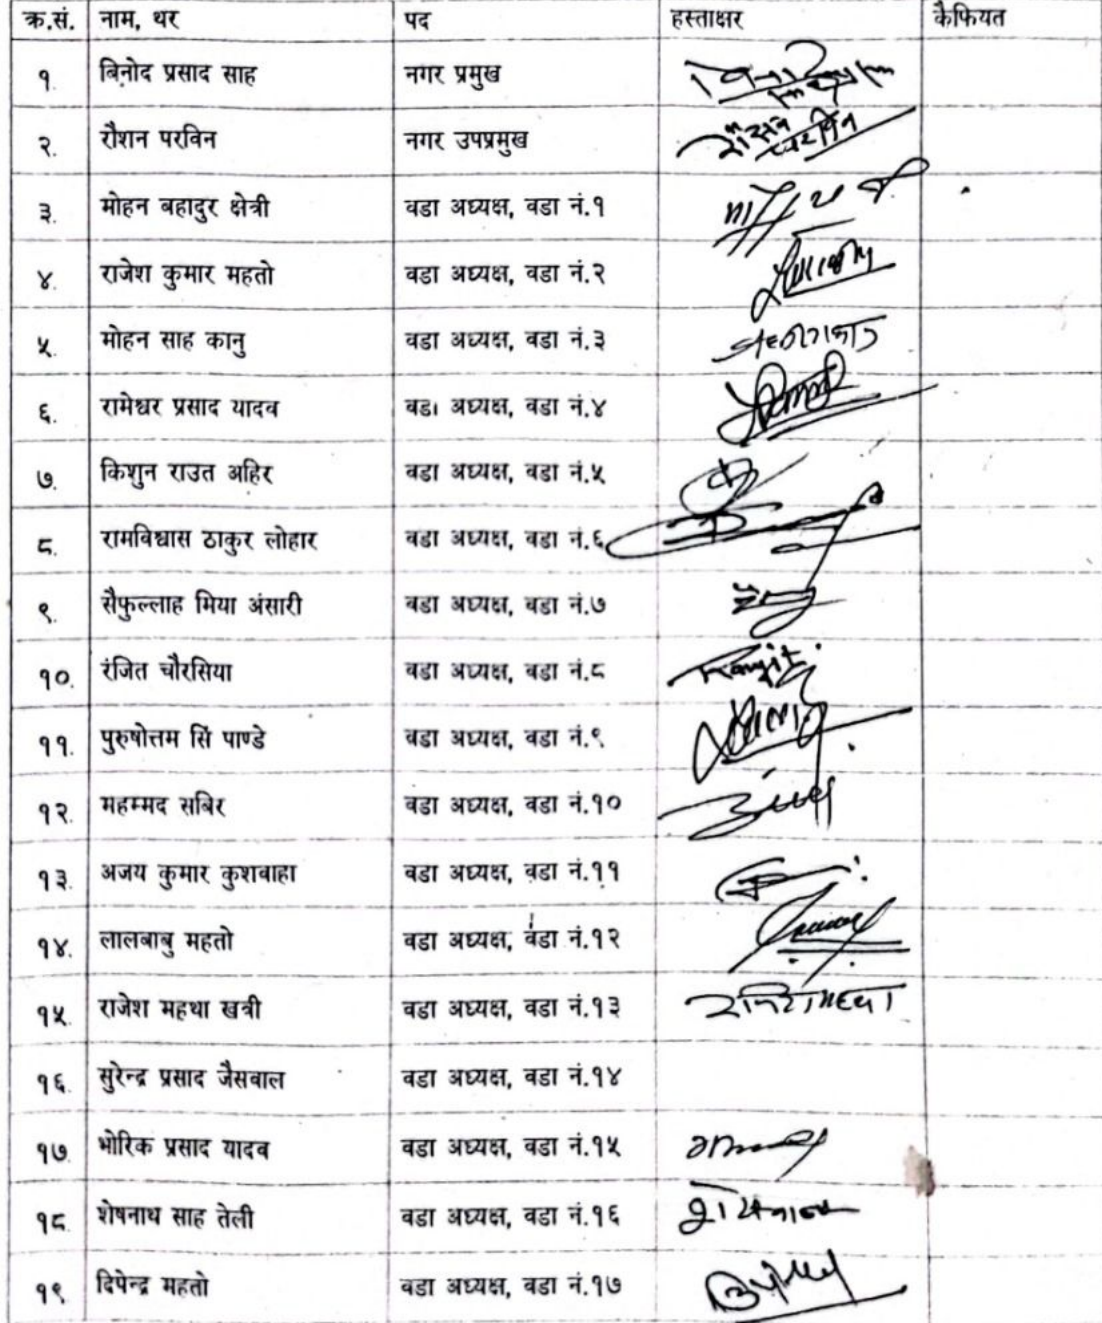 क्र.सं. नाम, थर पद हस्ताक्षर कैफियत
१. बिनोद प्रसाद साह नगर प्रमुख
२. रौशन परविन नगर उपप्रमुख रौसन परविन
३. मोहन बहादुर क्षेत्री वडा अध्यक्ष, वडा नं.१
४. राजेश कुमार महतो वडा अध्यक्ष, वडा नं.२
५. मोहन साह कानु वडा अध्यक्ष, वडा नं.३
६. रामेश्वर प्रसाद यादव वडा अध्यक्ष, वडा नं.४
७. किशुन राउत अहिर वडा अध्यक्ष, वडा नं.५
८. रामविश्वास ठाकुर लोहार वडा अध्यक्ष, वडा नं.६
९. सैफुल्लाह मिया अंसारी वडा अध्यक्ष, वडा नं.७
१०. रंजित चौरसिया वडा अध्यक्ष, वडा नं.८ Ranjit
११. पुरुषोत्तम सिं पाण्डे वडा अध्यक्ष, वडा नं.९
१२. महम्मद सबिर वडा अध्यक्ष, वडा नं.१०
१३. अजय कुमार कुशवाहा वडा अध्यक्ष, वडा नं.११
१४. लालबाबु महतो वडा अध्यक्ष, वडा नं.१२
१५. राजेश महथा खत्री वडा अध्यक्ष, वडा नं.१३
१६. सुरेन्द्र प्रसाद जैसवाल वडा अध्यक्ष, वडा नं.१४
१७. भोरिक प्रसाद यादव वडा अध्यक्ष, वडा नं.१५
१८. शेषनाथ साह तेली वडा अध्यक्ष, वडा नं.१६
१९. दिपेन्द्र महतो वडा अध्यक्ष, वडा नं.१७